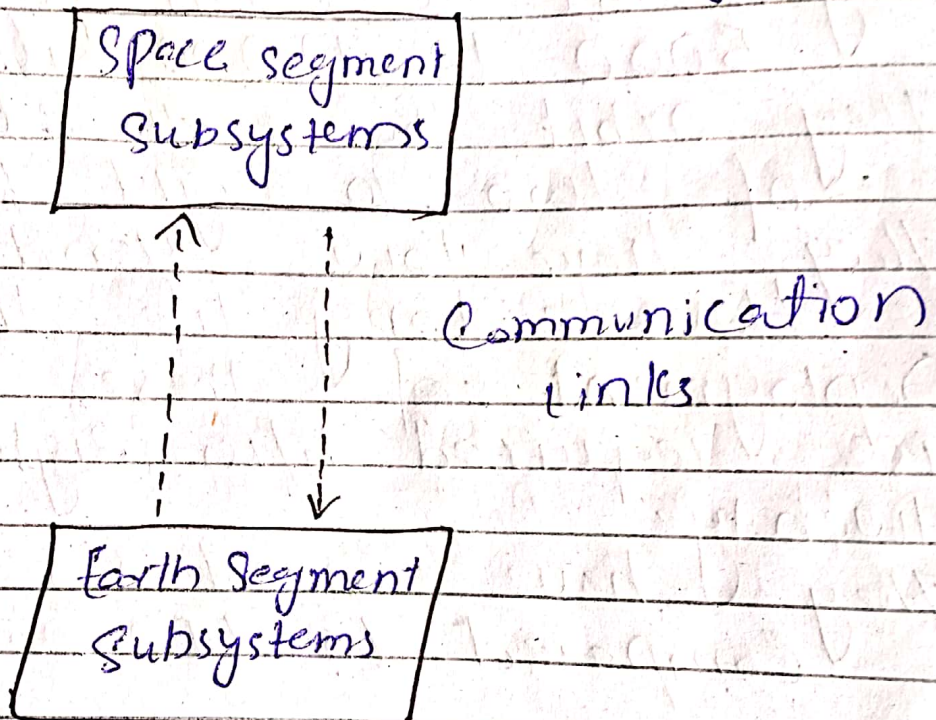 Space segment
Subsystems
Communication
Links
Earth Segment
Subsystems